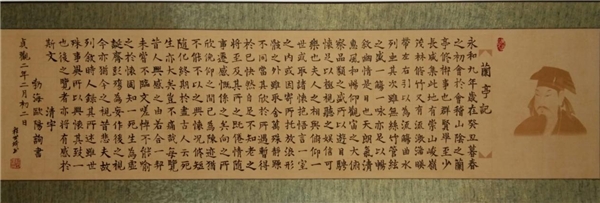 蘭亭記
永和九年歲在癸丑暮春
之初會於會稽山陰之蘭
亭脩禊事也群賢畢至少
長咸集此地有崇山峻嶺
茂林脩竹又有清流激湍暎
帶左右引以為流觴曲水
列坐其次雖無絲竹管絃
之盛一觴一詠亦足以暢
敘幽情是日也天朗氣清
惠風和暢仰觀宇宙之大俯
察品類之盛所以遊目騁
懷足以極視聽之娛信可
樂也夫人之相與俯仰一
世或取諸懷抱悟言一室
之內或因寄所託放浪形
骸之外雖取舍萬殊靜躁
不同當其欣於所遇暫得
於己快然自足不知老之
將至及其所之既倦情隨
事遷感慨係之矣向之所
欣俛仰之間已為陳迹猶
不能不以之興懷況脩短
隨化終期於盡古人云死
生亦大矣豈不痛哉每覽
昔人興感之由若合一契
未嘗不臨文嗟悼不能喻
之於懷固知一死生為虛
誕齊彭殤為妄作後之視
今亦猶今之視昔悲夫故
列敘時人錄其所述雖世
殊事異所以興懷其致一
也後之覽者亦將有感於
斯文 清宇
勃海歐陽詢書
貞觀二年二月初二日